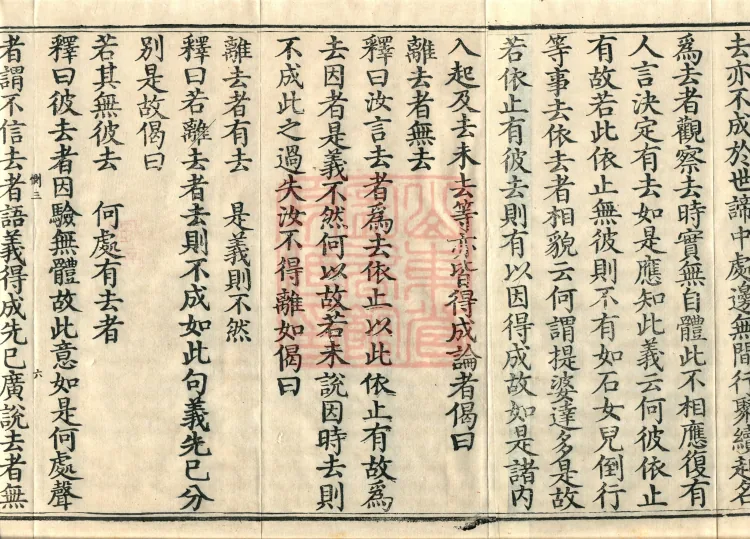 去亦不成於世諦中處邊無間行聚續起名
為去者觀察去時實無自體此不相應復有
人言決定有去如是應知此義云何彼依止
有故若此依止無彼則不有如石女兒倒行
等事去依去者相貌云何謂提婆達多是故
若依止有彼去則有以因得成故如是諸内
入起及去未去等亦皆得成論者偈曰
離去者無去
釋曰汝言去者為去依止以此依止有故為
去因者是義不然何以故若未說因時去則
不成此之過失汝不得離如偈曰
離去者有去　是義則不然
釋曰若離去者去則不成如此句義先已分
別是故偈曰
若其無彼去　何處有去者
釋曰彼去者因驗無體故此意如是何處聲
惻三　六
者謂不信去者語義得成先已廣說去者無